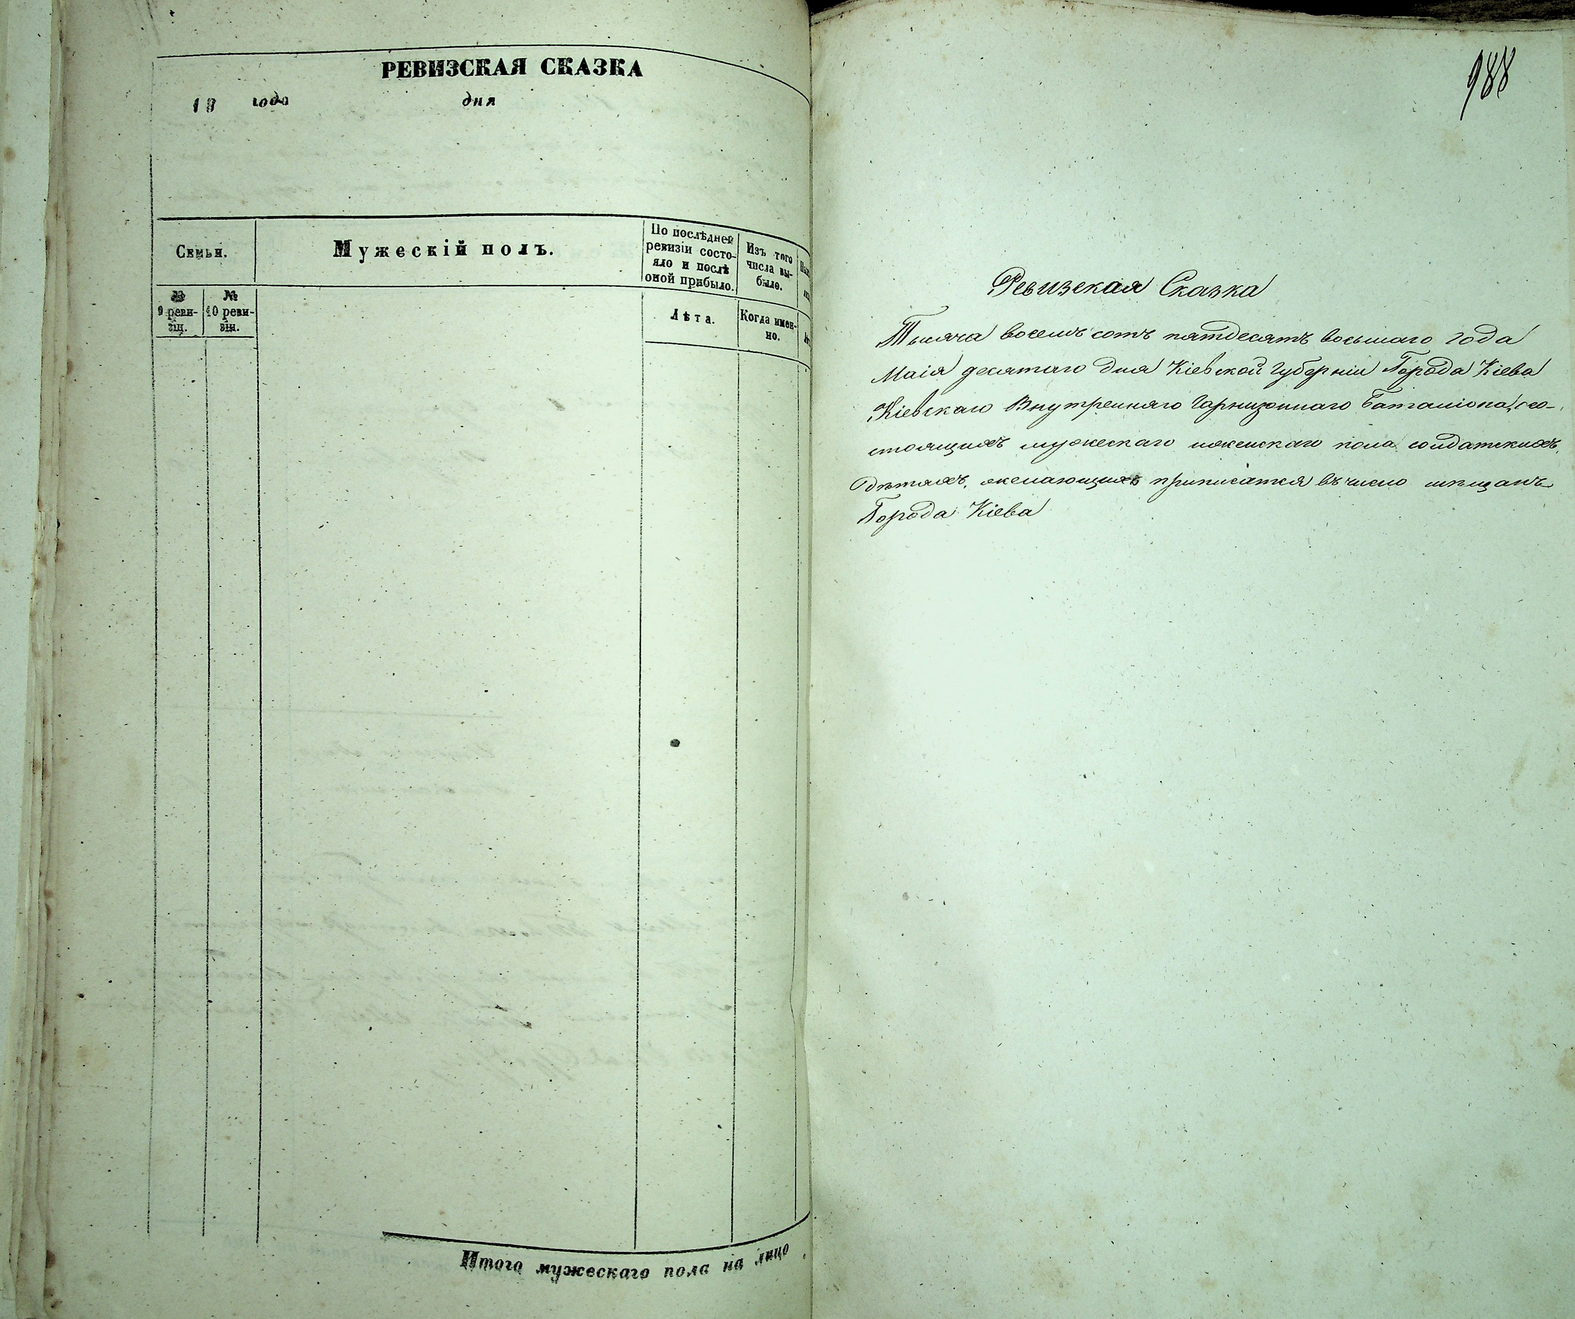 РЕВИЗСКАЯ СКАЗКА
18 года дня
Семьи.
Мужескій полъ.
По послѣдней
ревизіи состо-
яло и послѣ
оной прибыло.
Изъ того
числа вы-
было.
№
9 реви-
зіи.
№
10 реви-
зіи.
Лѣта.
Когда имен-
но.
Итого мужескаго пола на лицо
988
Ревизская Сказка
Тысяча восемь сотъ пятдесятъ восьмаго года
Маія десятаго дня Кіевской Губерніи Города Кіева
Кіевскаго Внутренняго Гарнизоннаго Баталіона, со-
стоящихъ мужескаго и женскаго пола солдатскихъ
дѣтяхъ, желающихъ приписатся въ число мещанъ
Города Кіева